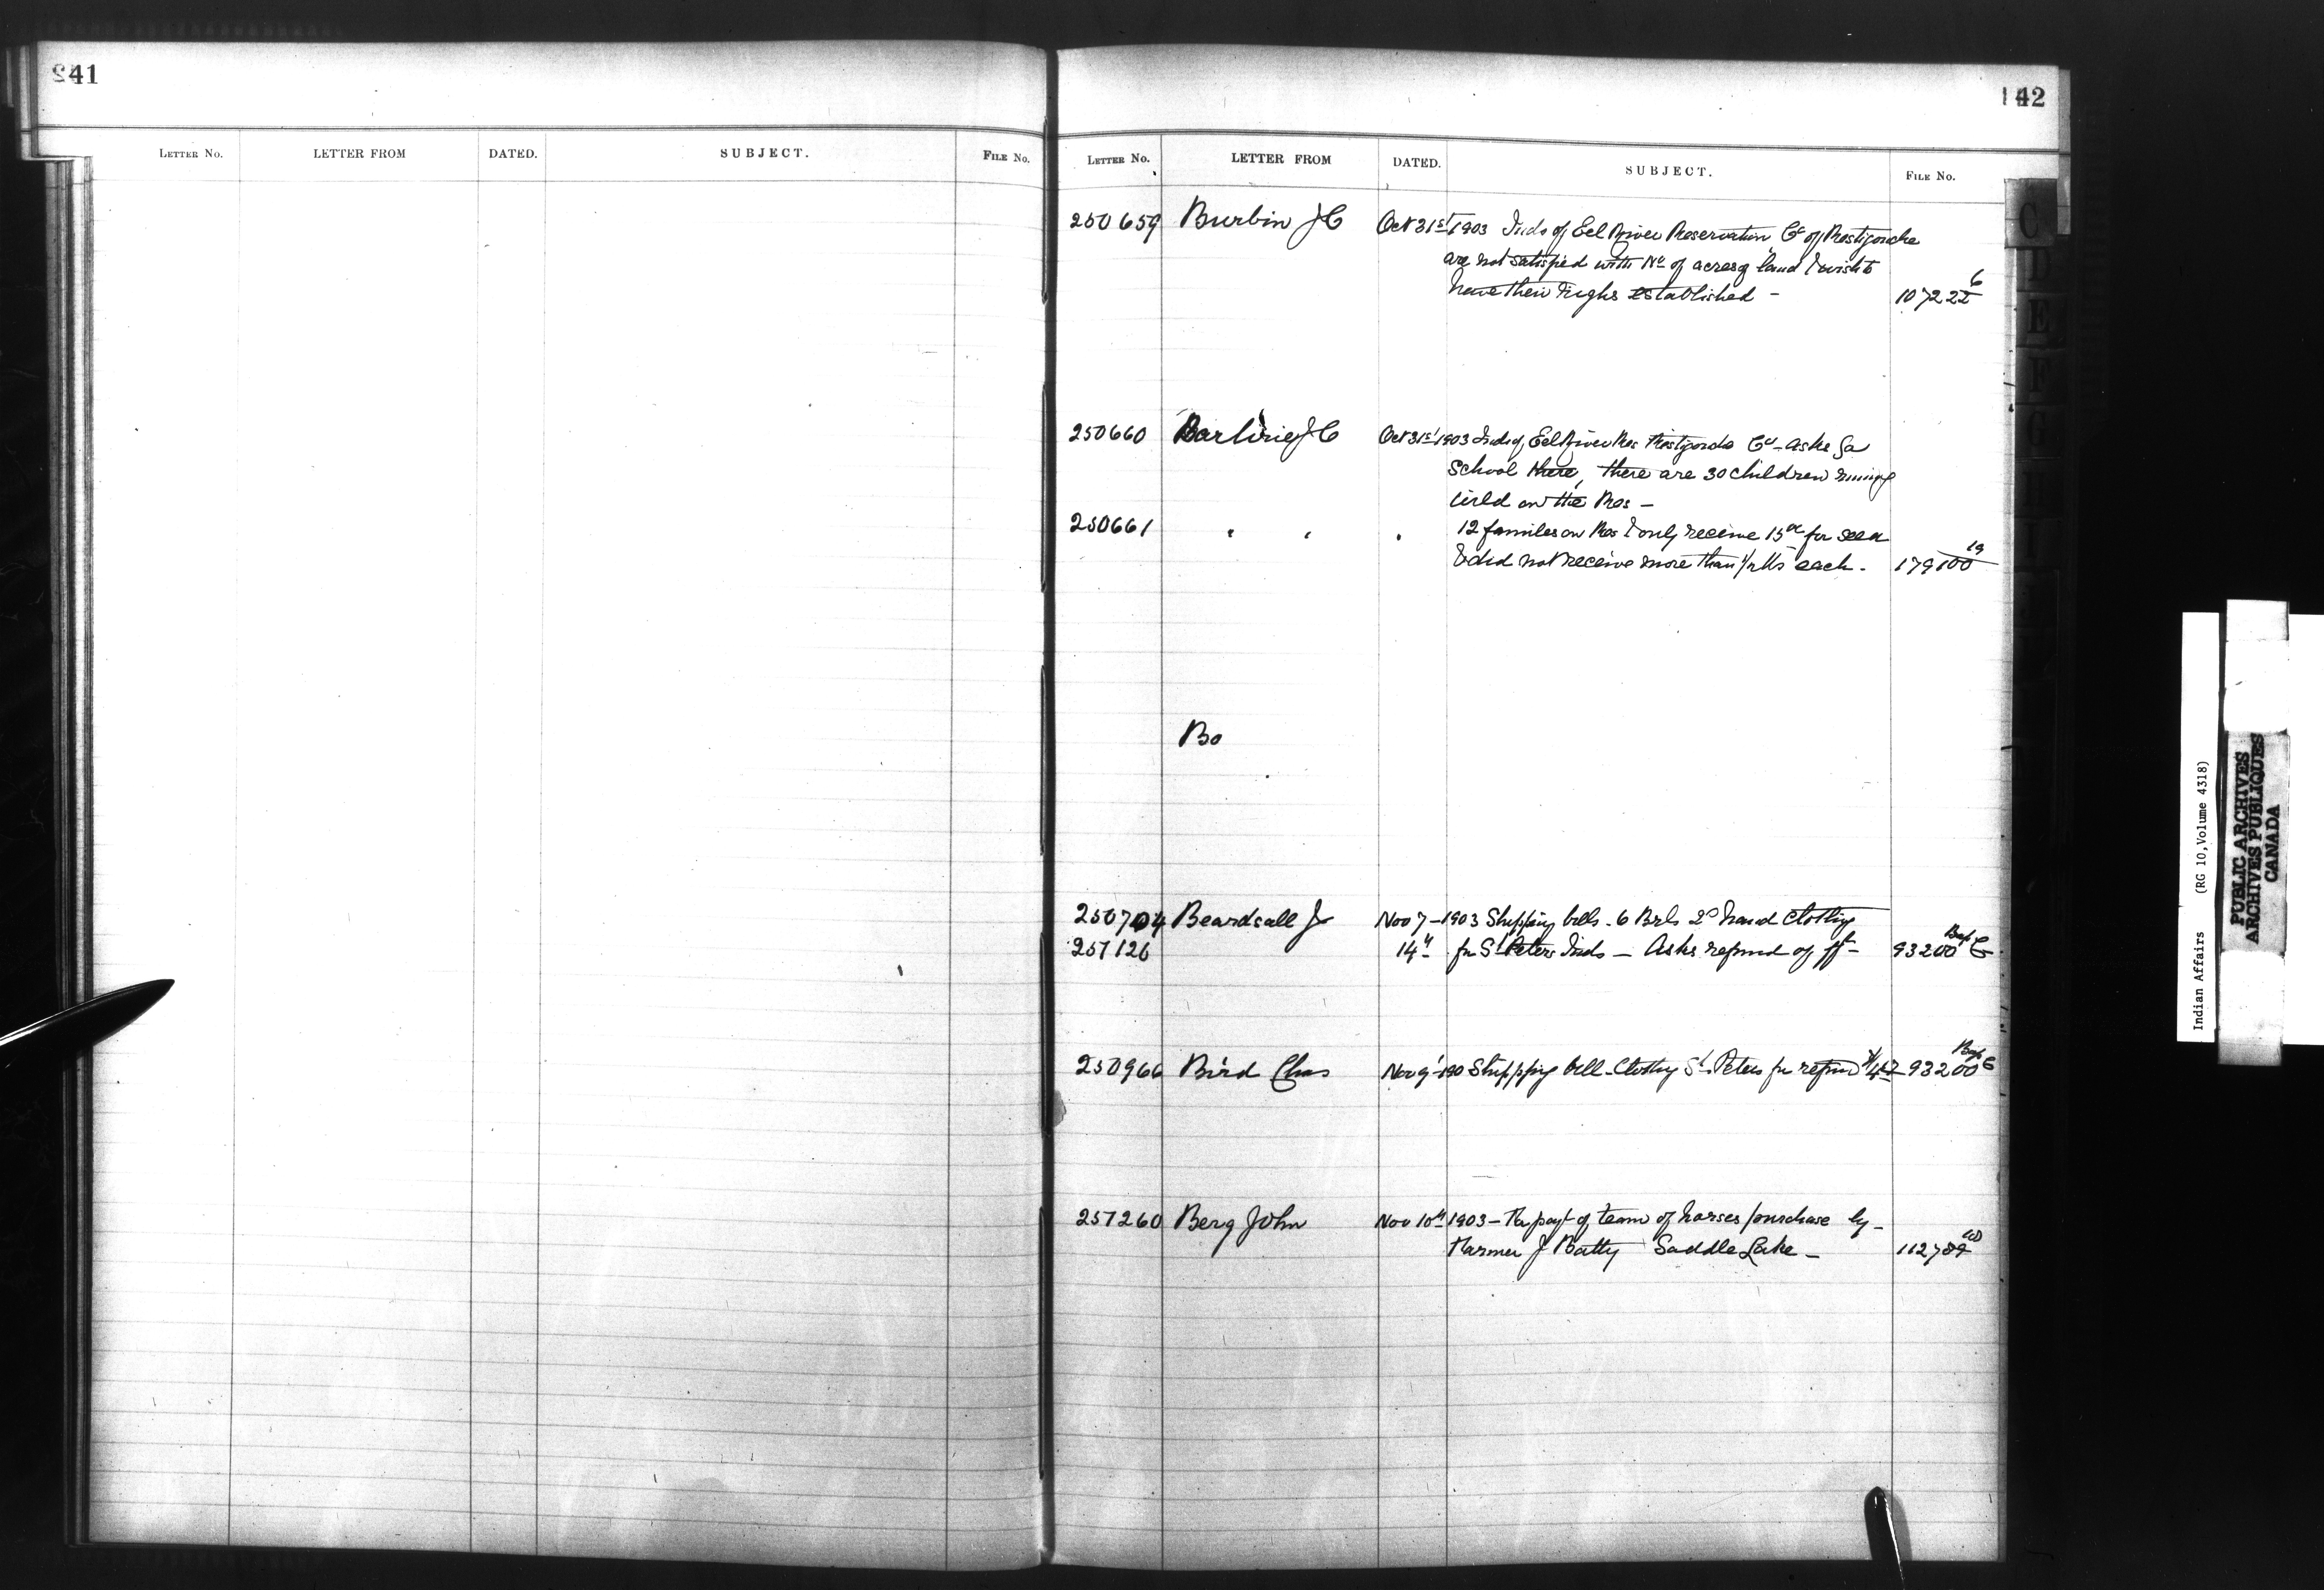 241
LETTER No. LETTER FROM DATED. SUBJECT. FILE No.
142
LETTER No. LETTER FROM DATED. SUBJECT. FILE No.
250659 Burbin J C Oct 31st 1903 Inds of Eel River Reservation Co of Restigouche
are not satisfied with No of acres of land & wish to
have their rights established - 107222 6
250660 J C Oct 31st 1903 Inds of Eel River Res Restigouche Co - asks for
School there, there are 30 children runing
wild on the Res -
250661 " " " 12 families on Res & only receive 15 00 for seed
& did not receive more than 1/2 each - 179100 19
Bo
250704 Beardsall J Nov 7 - 1903 Shipping bills - 6 Brls 2d hand Clothing
251126 14" for St Peters Inds - Asks refund of fft - 93200 C
250966 Bird Chas Nov 9 - 190 Shipping bill - Clothing St Peters for refund 93200 C
251260 Berg John Nov 10th 1903 - Re payt of team of horses purchase by -
Farmer J Batty Saddle Lake - 112789
C
D
E
F
G
Indian Affairs (RG 10, Volume 4318)
PUBLIC ARCHIVES
ARCHIVES PUBLIQUES
CANADA